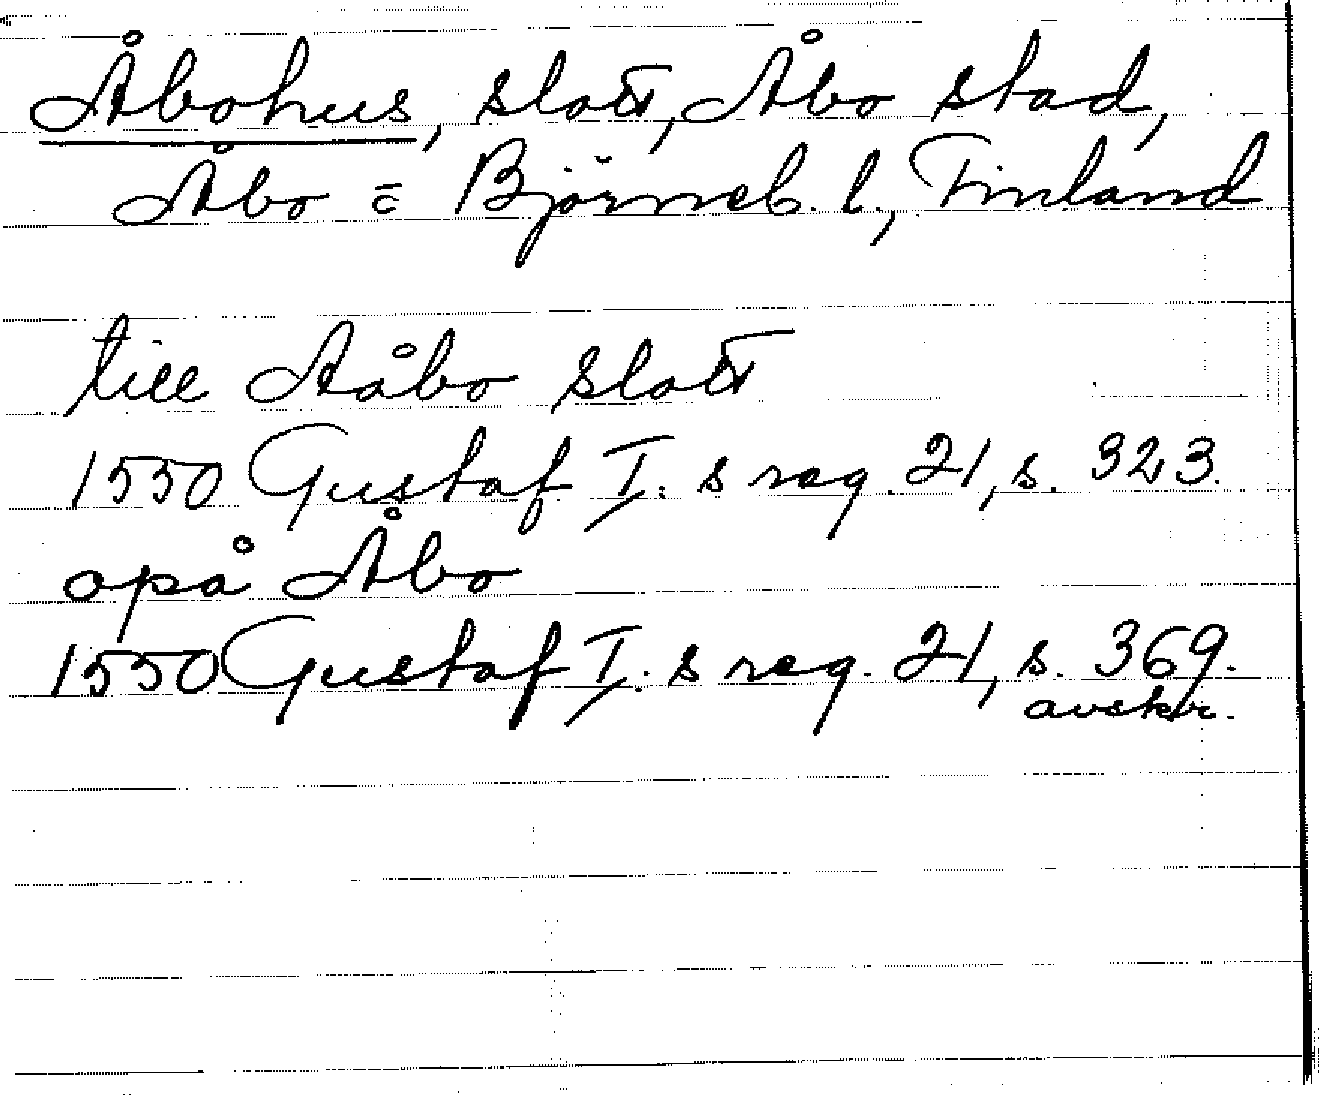 Åbohus, slott, Åbo stad,
Åbo = Björneb. l., Finland
till Aåbo slott
1550 Gustaf I: s reg. 21, s. 323.
opå Åbo
1550 Gustaf I: s reg. 21, s. 369.
avskr.